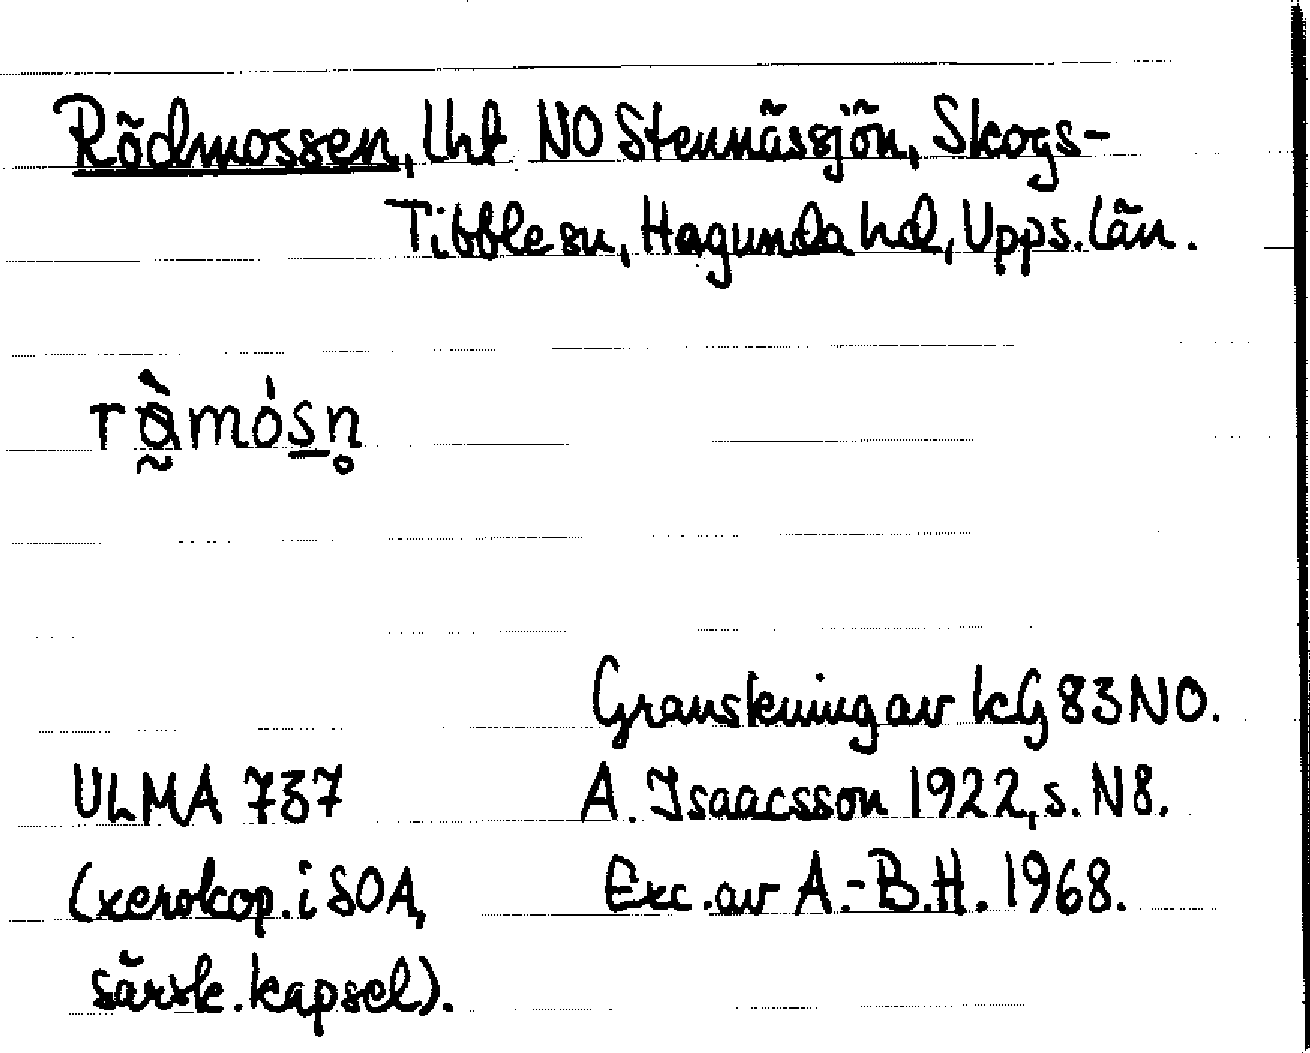 Rödmossen, lht NO Stennässjön, Skogs-
Tibble sn, Hagunda hd, Upps. län.
Granskning av kG 83 NO.
ULMA 737 A. Isaacsson 1922, s. N8.
(xerokop. i SOA, Exc. av A.-B.H. 1968.
särsk. kapsel).